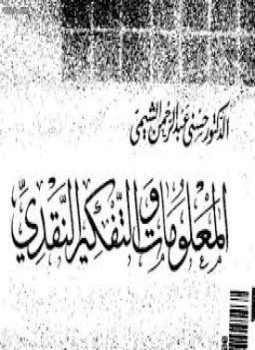 الدكتور حسني عبد الرحمن الشيمي
المعلومات والتفكير النقدي